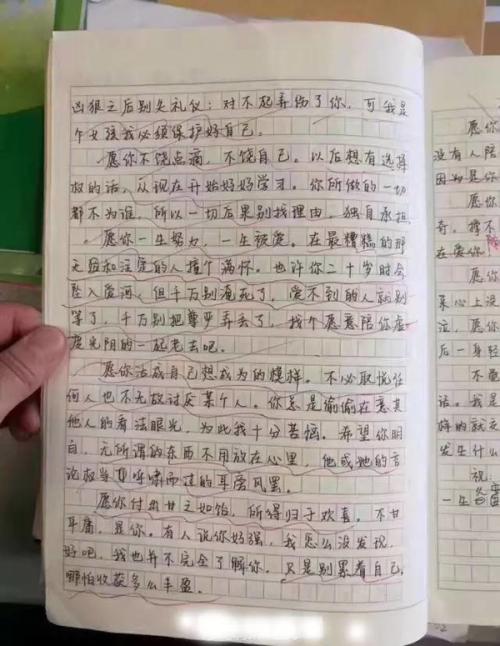 凶狠之后别失礼仪：对不起弄伤了你，可我是
个女孩我必须保护好自己。
愿你不饶点痛，不饶自己。以后想有选择
权的话，从现在开始好好学习。你所做的一切
都不为谁，所以一切后果别找理由，独自承担
愿你一生努力，一生被爱。在最糟糕的那
天因和注定的人撞个满怀。也许你二十岁时会
坠入爱河，但千万别淹死了，爱不到的人就别
等了，千万别把尊严弄丢了，找个愿意陪你虚
度光阴的一起老去吧。
愿你活成自己想成为的模样。不必取悦任
何人也不无故讨厌某个人。你总是偷偷在意其
他人的看法眼光，为此我十分苦恼。希望你明
白，无所谓的东西不用放在心里，他或她的言
论权当呼啸而过的耳旁风罢。
愿你付出甘之如饴，所得归于欢喜。不甘
平庸，是你。有人说你好强，我怎么没发现，
好吧，我也并不完全了解你。只是别累着自己，
哪怕收获多么丰盈。
愿你
没有人陪
因为是你
愿你
奇，撑不
在爱你
愿你
某心上没
泣，愿你
后一身轻
不要
话。我是
样的就
发生什么
祝
一生